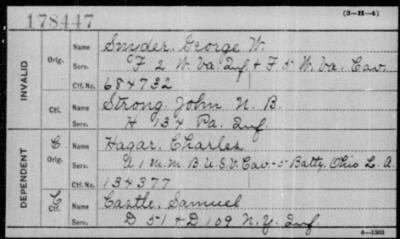 178447
(3-H-4)
INVALID
Orig. Name Snyder, George W.
Serv. F 2 W. Va. Inf & F 5 W. Va. Cav.
Ctf. No. 684732
Ctf. Name Strong, John N. B.
Serv. H 134 Pa. Inf.
DEPENDENT
C Orig. Name Hagar, Charles
Serv. A 1 M M B U.S.V. Cav. - 5 Batty. Ohio L. A.
Ctf. No. 134377
C Ctf. Name Castle, Samuel
Serv. D 51 & D 109 N.Y. Inf
6-1303